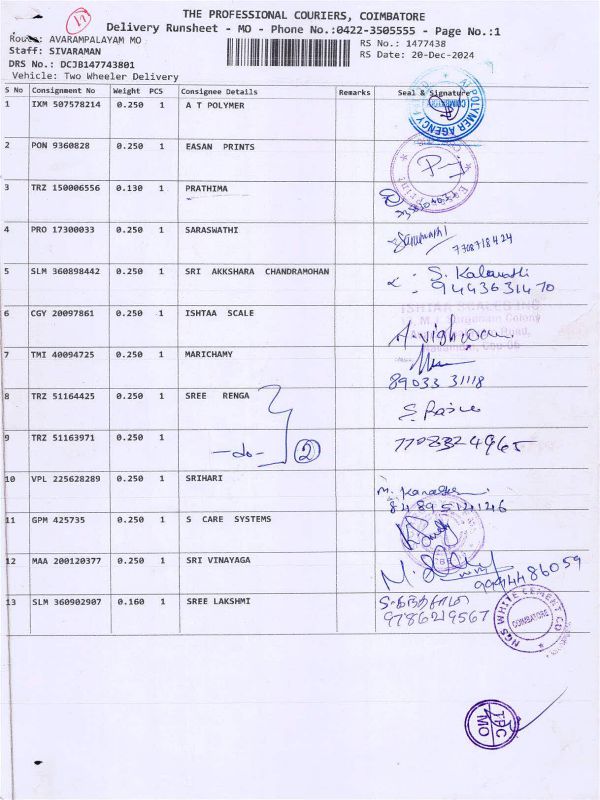 17
THE PROFESSIONAL COURIERS, COIMBATORE
Delivery Runsheet - MO - Phone No.:0422-3505555 - Page No.:1
Route: AVARAMPALAYAM MO
RS No.: 1477438
Staff: SIVARAMAN
RS Date: 20-Dec-2024
DRS No.: DCJB147743801
Vehicle: Two Wheeler Delivery
S No Consignment No Weight PCS Consignee Details Remarks Seal & Signature
1 IXM 507578214 0.250 1 A T POLYMER
POLYMER AGENCY
2 PON 9360828 0.250 1 EASAN PRINTS
3 TRZ 150006556 0.130 1 PRATHIMA
4 PRO 17300033 0.250 1 SARASWATHI
7708718424
5 SLM 360898442 0.250 1 SRI AKKSHARA CHANDRAMOHAN
S. Kalavathi
9443631470
6 CGY 20097861 0.250 1 ISHTAA SCALE
ISHTAA SCALES INC
Colony
Road,
7 TMI 40094725 0.250 1 MARICHAMY
89033 31118
8 TRZ 51164425 0.250 1 SREE RENGA
9 TRZ 51163971 0.250 1 -do- 2
7708324965
10 VPL 225628289 0.250 1 SRIHARI
8489514146
11 GPM 425735 0.250 1 S CARE SYSTEMS
12 MAA 200120377 0.250 1 SRI VINAYAGA
9994486059
13 SLM 360902907 0.160 1 SREE LAKSHMI
9786219567
NGS WHITE CEMENT CO
COIMBATORE
TPC
MO